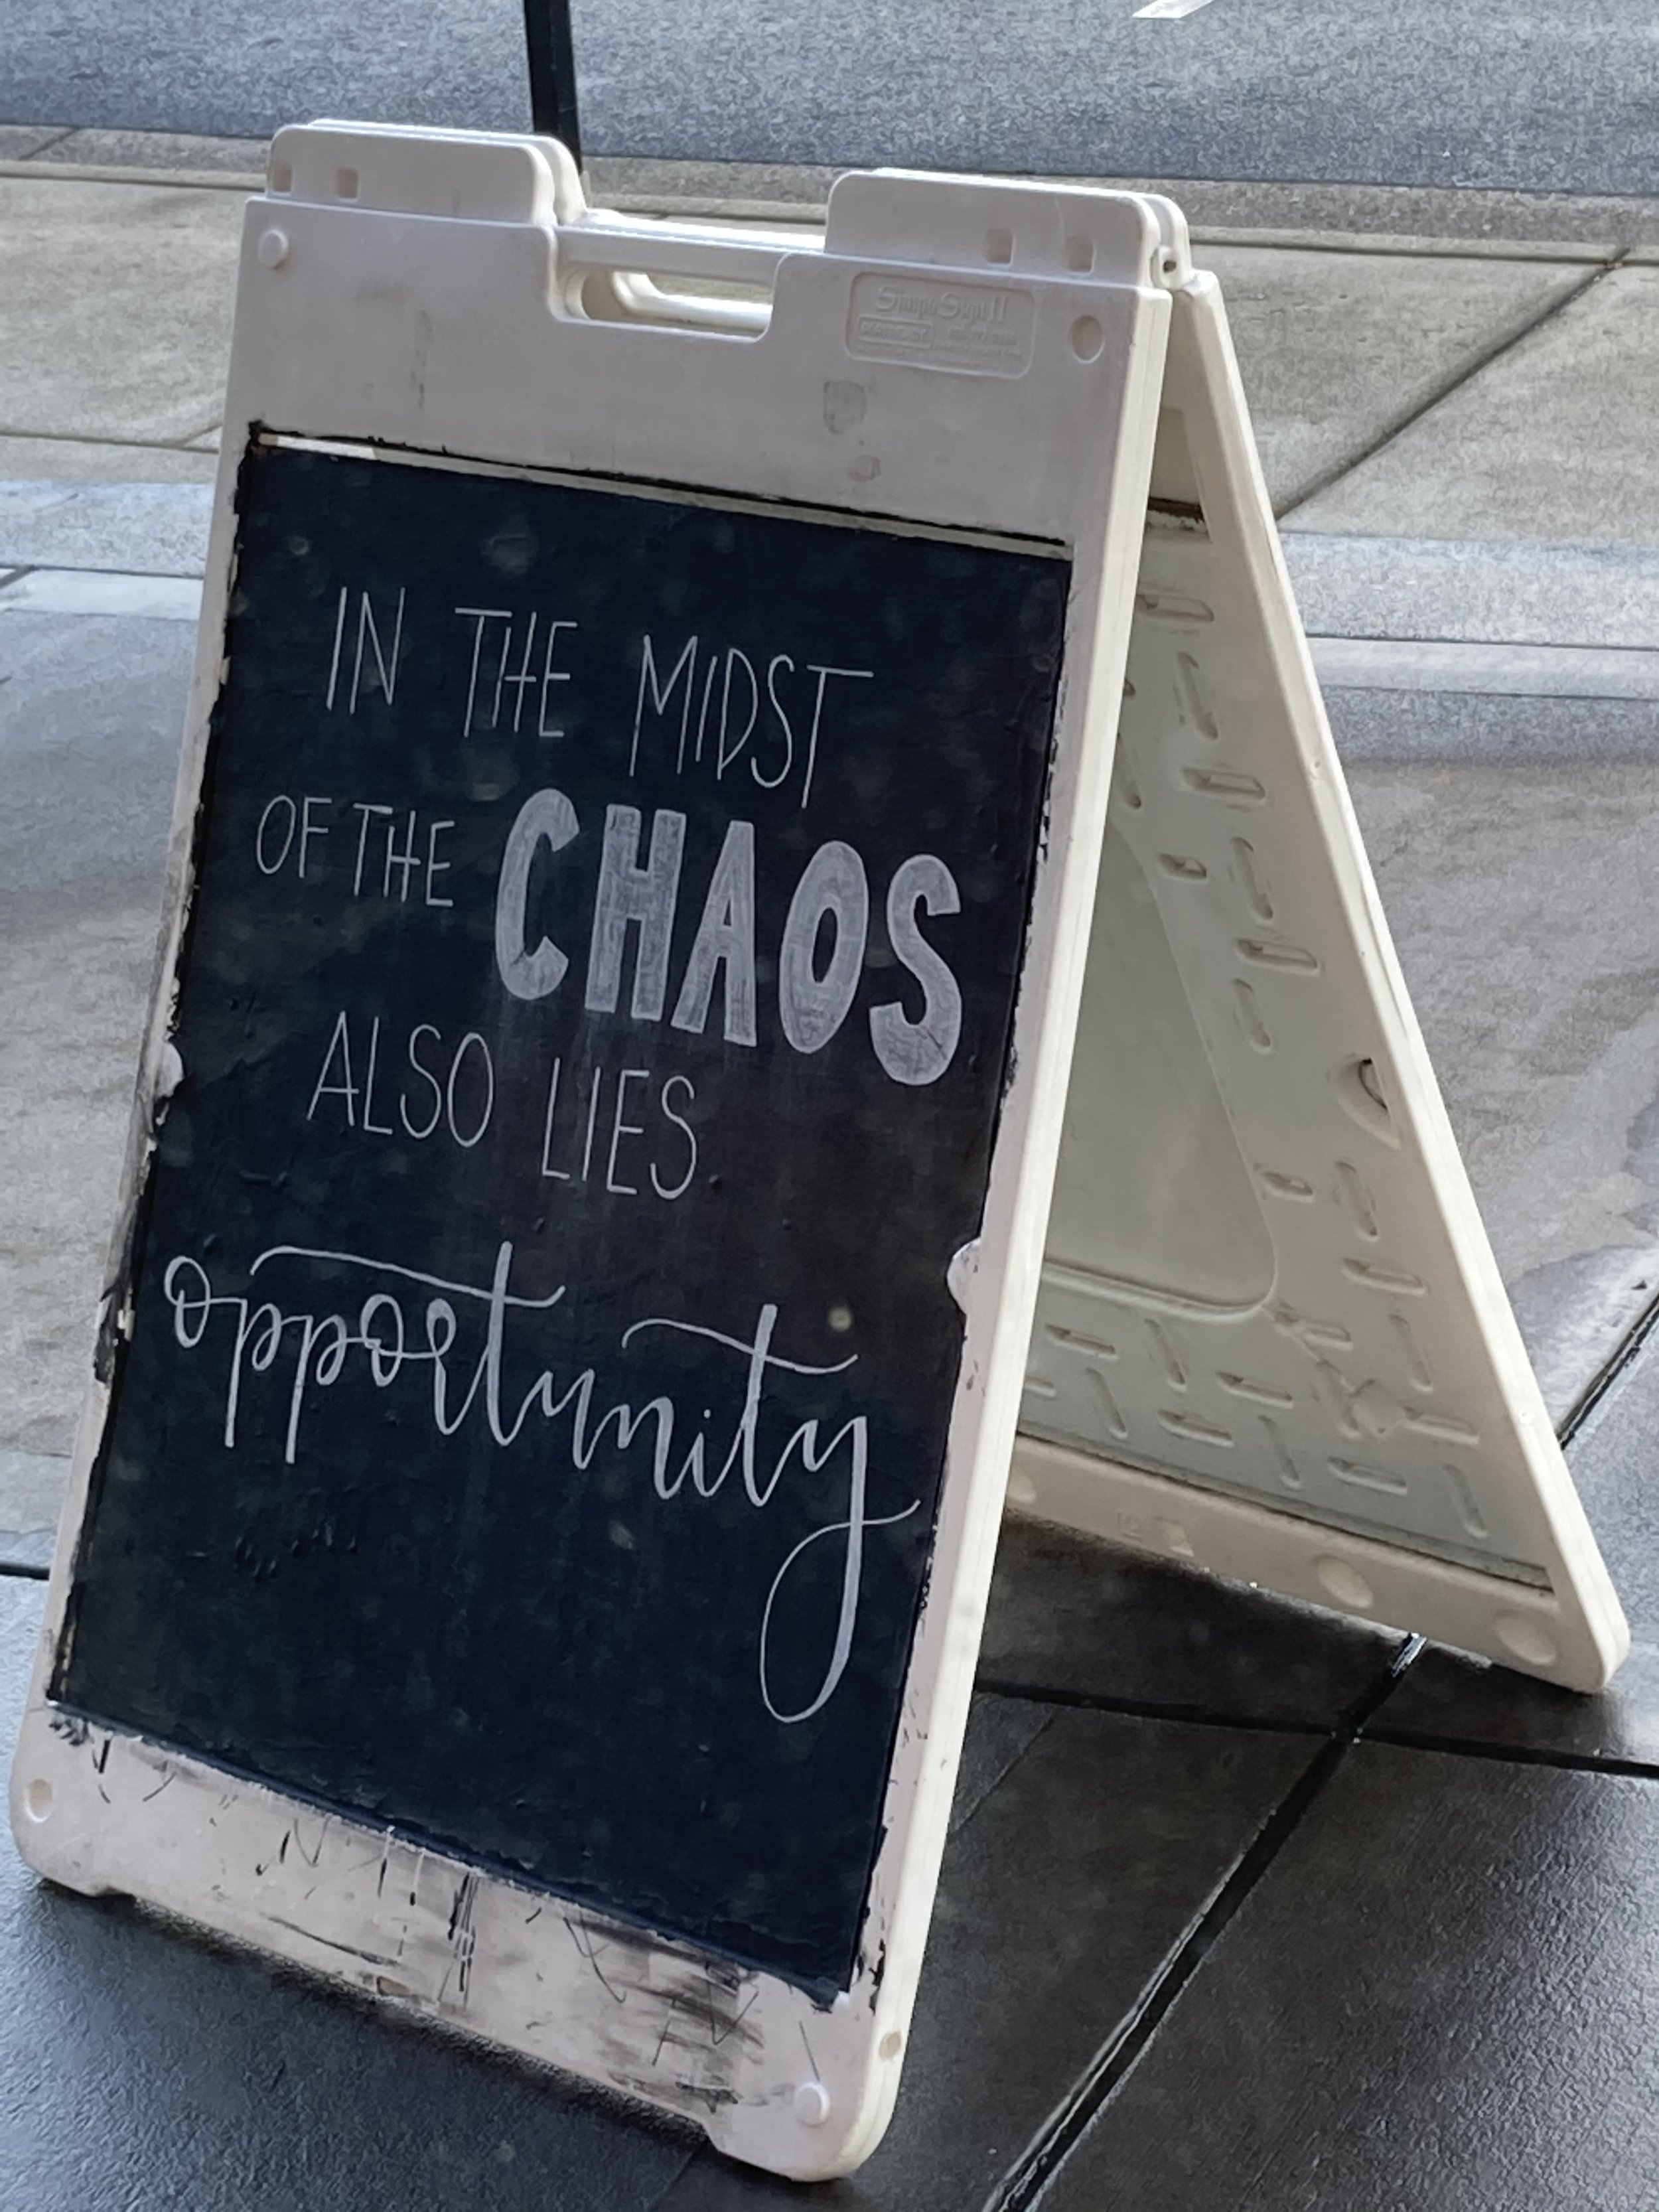 SimpoSign II
IN THE MIDST
OF THE CHAOS
ALSO LIES
opportunity